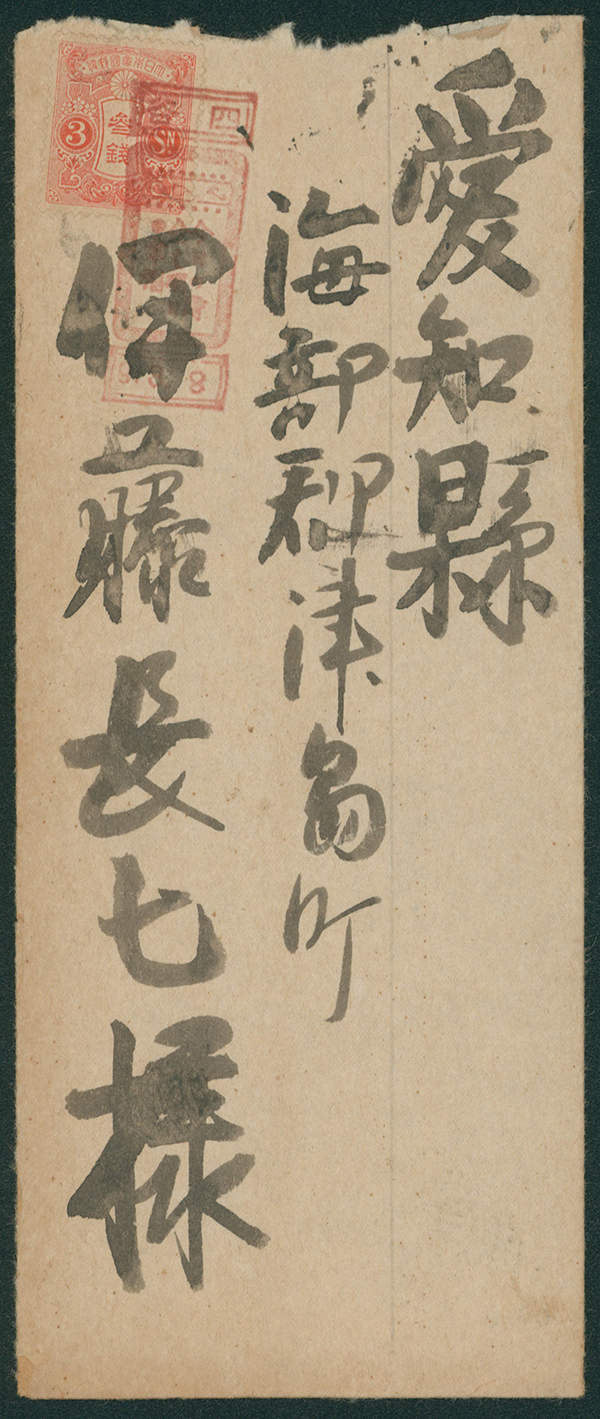 愛知縣
海部郡津島町
伊藤長七様
大日本帝國郵便
参錢
3
SN
四
8